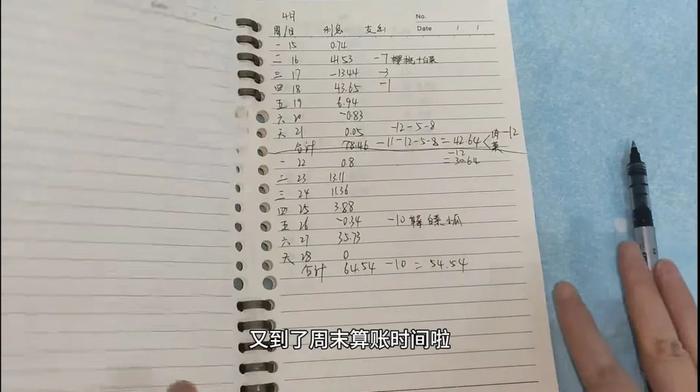 4月
No.
周/日 利息 支出
Date / /
一 15 0.74
二 16 41.53 -7
三 17 -13.44 -3
四 18 43.65 -1
五 19 6.94
六 20 -0.83
天 21 0.05 -12-5-8
合计 78.46 -11-12-5-8=42.64 -12
-12
一 22 0.8 =30.64
二 23 13.11
三 24 11.36
四 25 3.88
五 26 -0.34 -10
六 27 35.73
天 28 0
合计 64.54 -10 = 54.54
又到了周末算账时间啦